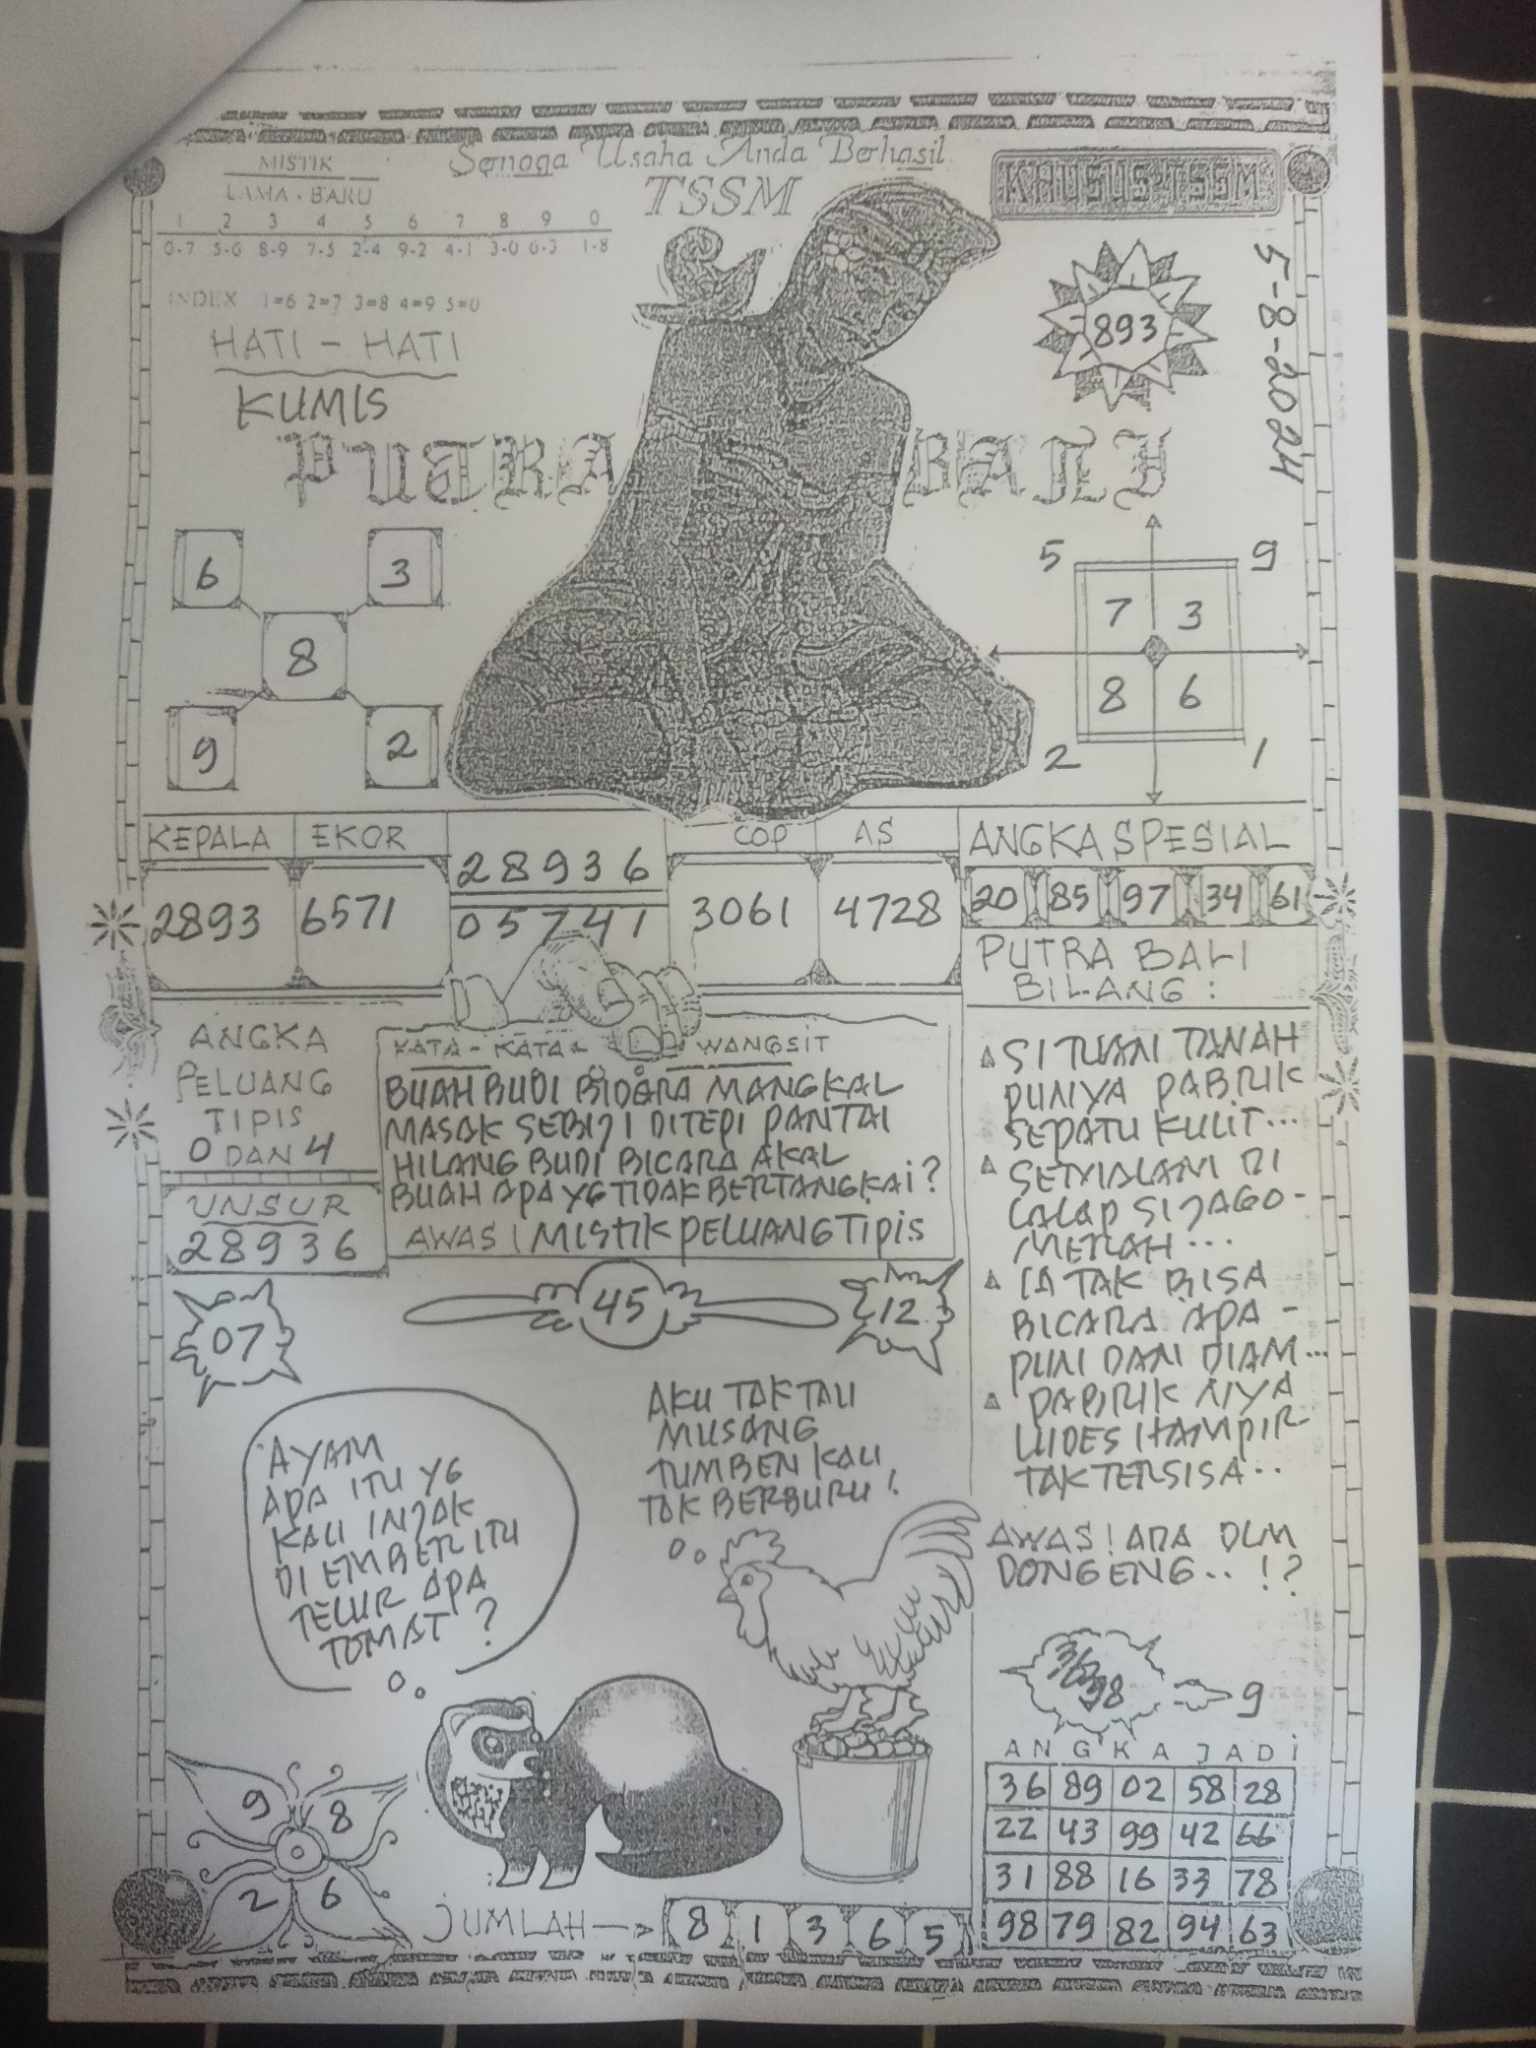 MISTIK
LAMA - BARU
1 2 3 4 5 6 7 8 9 0
0-7 5-6 8-9 7-5 2-4 9-2 4-1 3-0 6-3 1-8
INDEX 1=6 2=7 3=8 4=9 5=0
Semoga Usaha Anda Berhasil
TSSM
KHUSUS TSSM
893
5-8-2024
HATI - HATI
KUMIS
PUTRA BALI
6 3
8
9 2
5 9
7 3
8 6
2 1
KEPALA EKOR
2893 6571
28936
05741
COP AS
3061 4728
ANGKA SPESIAL
20 85 97 34 61
ANGKA
PELUANG
TIPIS
0 DAN 4
UNSUR
28936
KATA - KATA WANGSIT
BUAH BUDI BIDARA MANGKAL
MASAK SEBIJI DITEPI PANTAI
HILANG BUDI BICARA AKAL
BUAH APA YG TIDAK BERTANGKAI?
AWAS! MISTIK PELUANG TIPIS
PUTRA BALI
BILANG :
SI TUAN TANAH
PUNYA PABRIK
SEPATU KULIT...
SEMALAM DI
LALAP SI JAGO-
MERAH...
IA TAK BISA
BICARA APA-
PUN DAN DIAM...
PABRIK NYA
LUDES HAMPIR
TAK TERSISA..
AWAS! ADA DLM
DONGENG..!?
07
45
12
AYAM
APA ITU YG
KAU INJAK
DI EMBER ITU
TELUR APA
TOMAT?
AKU TAK TAU
MUSANG
TUMBEN KAU
TAK BERBURU!
9 8
2 6
JUMLAH
8 1 3 6 5
98
9
ANGKA JADI
36 89 02 58 28
22 43 99 42 66
31 88 16 33 78
98 79 82 94 63